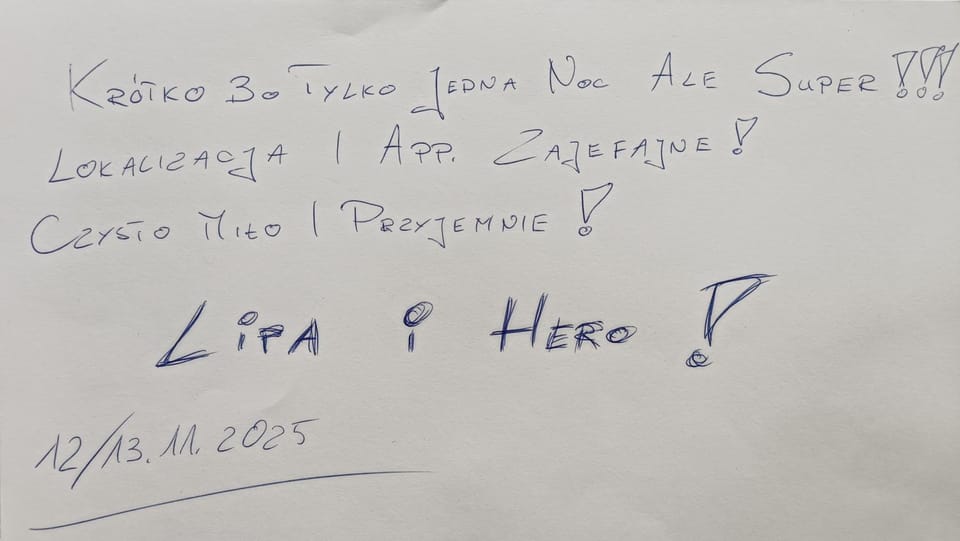 Krótko Bo Tylko Jedna Noc Ale Super!!!
Lokalizacja I App. Zajefajne!
Czysto Miło I Przyjemnie!
Lipa i Hero!
12/13.11.2025